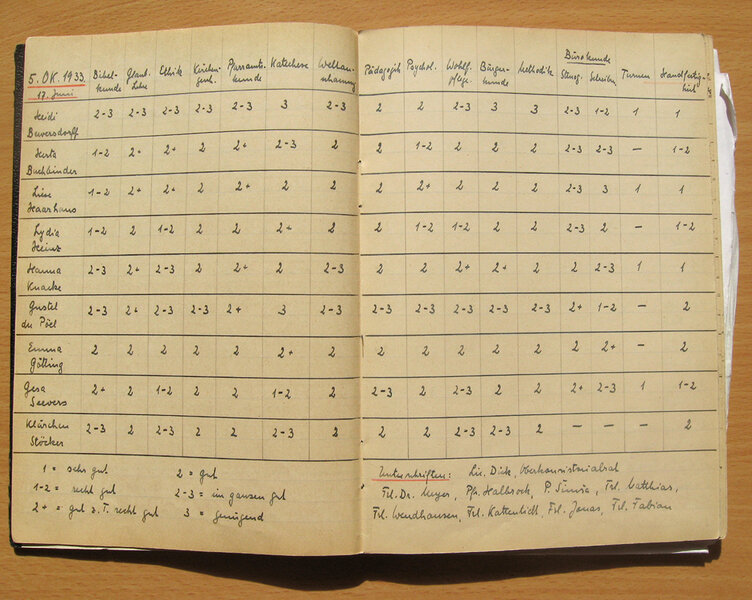 5. OK. 1933. Bibel- Glaub. Ethik Kirchen- Pfarramts- Katechese Weltan- Pädagogik Psychol. Wohlf. Bürger- Methodik Bürokunde Turnen Handfertig-
17. Juni kunde Lehre gesch. kunde schauung pflege. kunde Stenogr. Schreiben keit
Heidi Beversdorff 2-3 2-3 2-3 2-3 2-3 3 2-3 2 2 2-3 3 3 2-3 1-2 1 1
Herta Buchbinder 1-2 2+ 2+ 2 2+ 2-3 2 2 1-2 2 2 2 2-3 2-3 — 1-2
Liese Haarhaus 1-2 2+ 2+ 2 2+ 2 2 2 2+ 2 2 2 2-3 3 1 1
Lydia Heinz 1-2 2 1-2 2 2 2+ 2 2 1-2 1-2 2 2 2-3 2 — 1-2
Hanna Knacke 2-3 2+ 2-3 2 2+ 2 2-3 2 2 2+ 2+ 2 2 2-3 1 1
Gustel du Pöel 2-3 2+ 2-3 2-3 2+ 3 2-3 2-3 2-3 2-3 2-3 2-3 2+ 1-2 — 2
Emma Götting 2 2 2 2 2 2+ 2 2 2 2 2 2 2 2+ — 2
Gesa Seevers 2+ 2 1-2 2 2 1-2 2 2-3 2 2-3 2 2 2+ 2-3 1 1-2
Klärchen Stöcker 2-3 2 2-3 2 2 2-3 2 2 2 2-3 2-3 2 — — — 2
1 = sehr gut 2 = gut
1-2 = recht gut 2-3 = im ganzen gut
2+ = gut z. T. recht gut 3 = genügend
Unterschriften: Lic. Dick, Oberkonsistorialrat
Frl. Dr. Meyer, Pfr. Halbrock, P. Frl. Matthias,
Frl. Wendhausen, Frl. Kattentidt, Frl. Jonas, Frl. Fabian